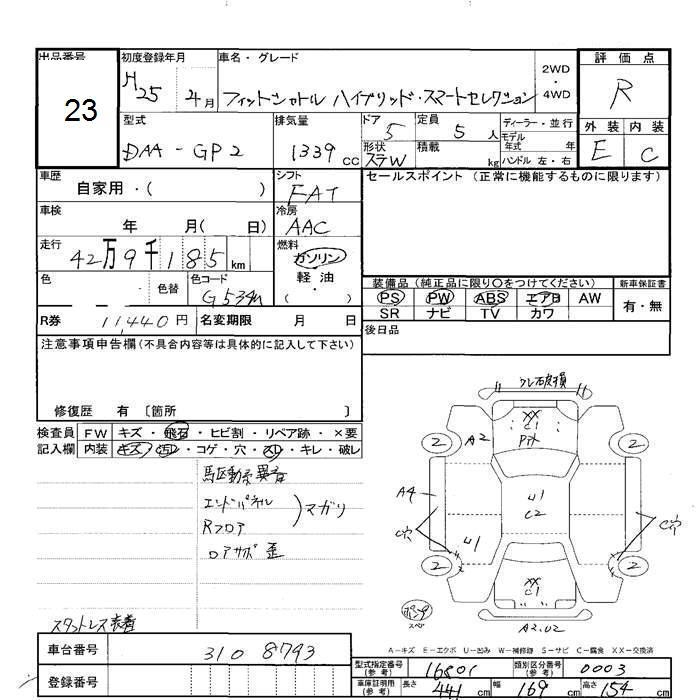 出品番号 初度登録年月 車名・グレード 2WD・4WD 評価点
23
H25 4月 フィットシャトル ハイブリッド・スマートセレクション R
型式 排気量 ドア 定員 ディーラー・並行 外装 内装
DAA-GP2 1339cc 5 5人 モデル年式 年 E C
形状 ステW 積載 kg ハンドル 左・右
車歴 シフト セールスポイント (正常に機能するものに限ります)
自家用・( ) FAT
車検 冷房
年 月( 日) AAC
走行 燃料
42万9千185km ガソリン・軽油・
色 色替 色コード 装備品(純正品に限り○をつけてください) 新車保証書
G534M PS PW ABS エアB AW 有・無
SR ナビ TV カワ
R券 11,440円 名変期限 月 日 後日品
注意事項申告欄(不具合内容等は具体的に記入して下さい)
修復歴 有 〔箇所 〕
検査員 FW キズ・飛石・ヒビ割・リペア跡・×要
記入欄 内装 キズ・汚レ・コゲ・穴・スレ・キレ・破レ
駆動系異音
エンドパネル
Rフロア マガリ
ロアサポ 歪
ウレ破損
XX
C1
2 A2 2
A4 U1
C2
C穴 U1 C穴
2 XX 2
C1
パンク
スペア
A2.U2
スタットレス装着
A-キズ E-エクボ U-凹み W-補修跡 S-サビ C-腐食 XX-交換済
車台番号 310 8793
型式指定番号(参考) 16801 類別区分番号(参考) 0003
登録番号
車庫証明用(参考) 長さ 441cm 幅 169cm 高さ 154cm